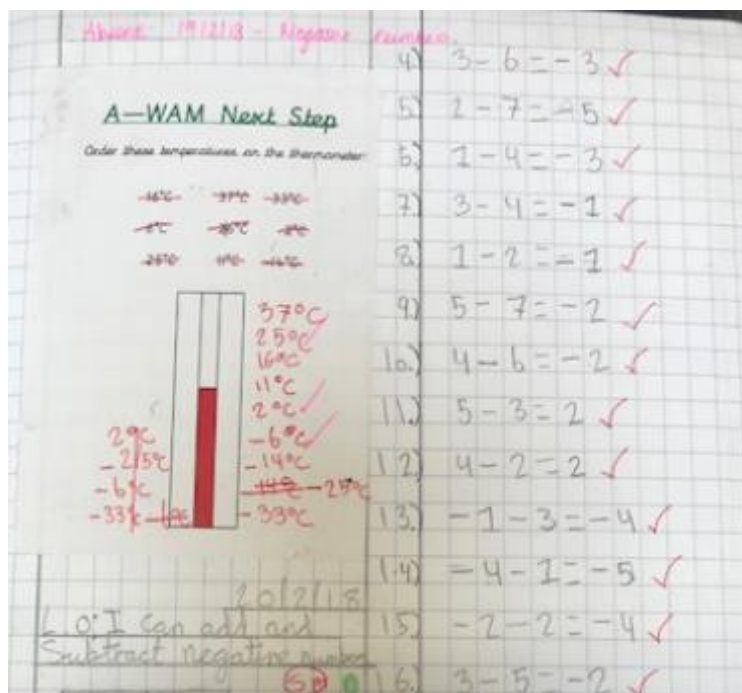 Absent 19/2/18 - Negative numbers
A—WAM Next Step
Order these temperatures on the thermometer
37°C
25°C
16°C
11°C
2°C
-6°C
-14°C
-25°C
-33°C
2°C
-25°C
-6°C
-33°C
20/2/18
L.O: I can add and
Subtract negative number
4) 3 - 6 = - 3 ✓
5) 2 - 7 = - 5 ✓
6) 1 - 4 = - 3 ✓
7) 3 - 4 = - 1 ✓
8) 1 - 2 = - 1 ✓
9) 5 - 7 = - 2 ✓
10) 4 - 6 = - 2 ✓
11) 5 - 3 = 2 ✓
12) 4 - 2 = 2 ✓
13) - 1 - 3 = - 4 ✓
14) - 4 - 1 = - 5 ✓
15) - 2 - 2 = - 4 ✓
16) 3 - 5 = - 2 ✓